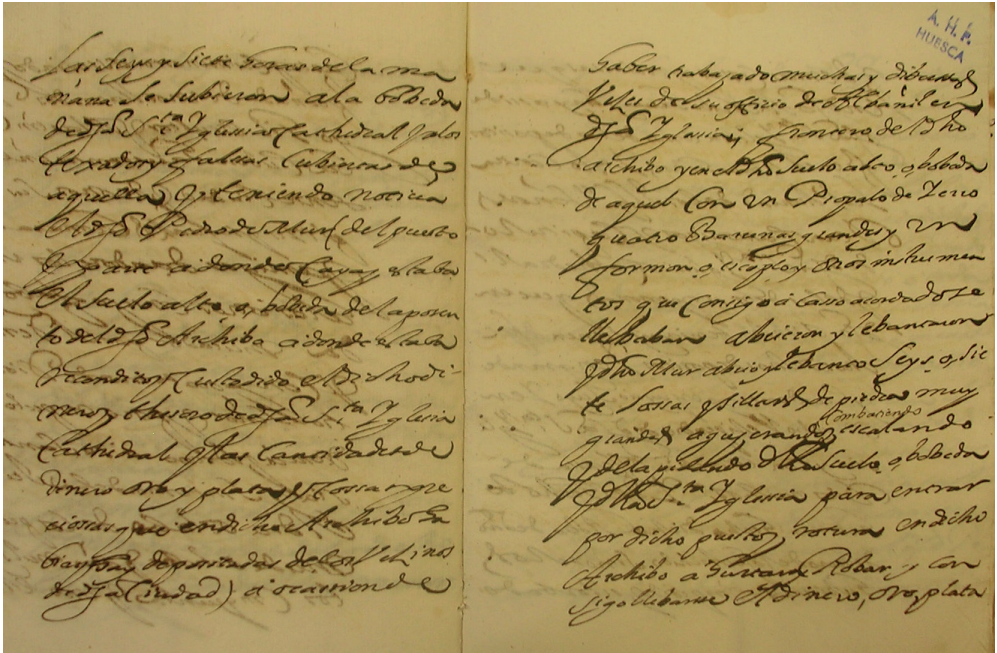 Las seys y siete horas de la ma
ñana se subieron a la bobeda
de dha Sta Yglesia Cathedral y a los
texados y falsas cubiertas de
aquella y teniendo noticia
el dho Pedro de Mur del puesto
y parte a donde caya y estaba
el suelo alto o, bobeda del aposen
to del dho Archibo a donde estaba
recondito y custodido el dicho di-
nero y thesoro de dha Sta Yglesia
Cathedral y las cantidades de
dinero oro y plata y cossas mas pre
ciosas que en dicho Archibo ha
bia y hay depositadas de los vehinos
de dha Ciudad) a ocasion de
A. H. P.
HUESCA
haber trabajado muchas y dibersas
veces de su officio de Albañil en
dha Yglesia y frontero de dho
archibo y en el dho suelo alto o, bobeda
de aquel con un Propalo de yerro
quatro Barrinas grandes y un
formon o, escoplo y otros instrumen
tos que consigo a casso acordado se
llebaban abrieron y lebantaron
y dho Mur abrio y lebanto seys o, sie
te lossas y sillares de piedra muy
combatiendo
grandes agujerando escalando
y delapidando dho suelo o, bobeda
y dha Sta Yglesia para entrar
por dicho puesto y rotura en dicho
Archibo a hurtar y Robar y con
sigo llebarse el dinero, oro, plata